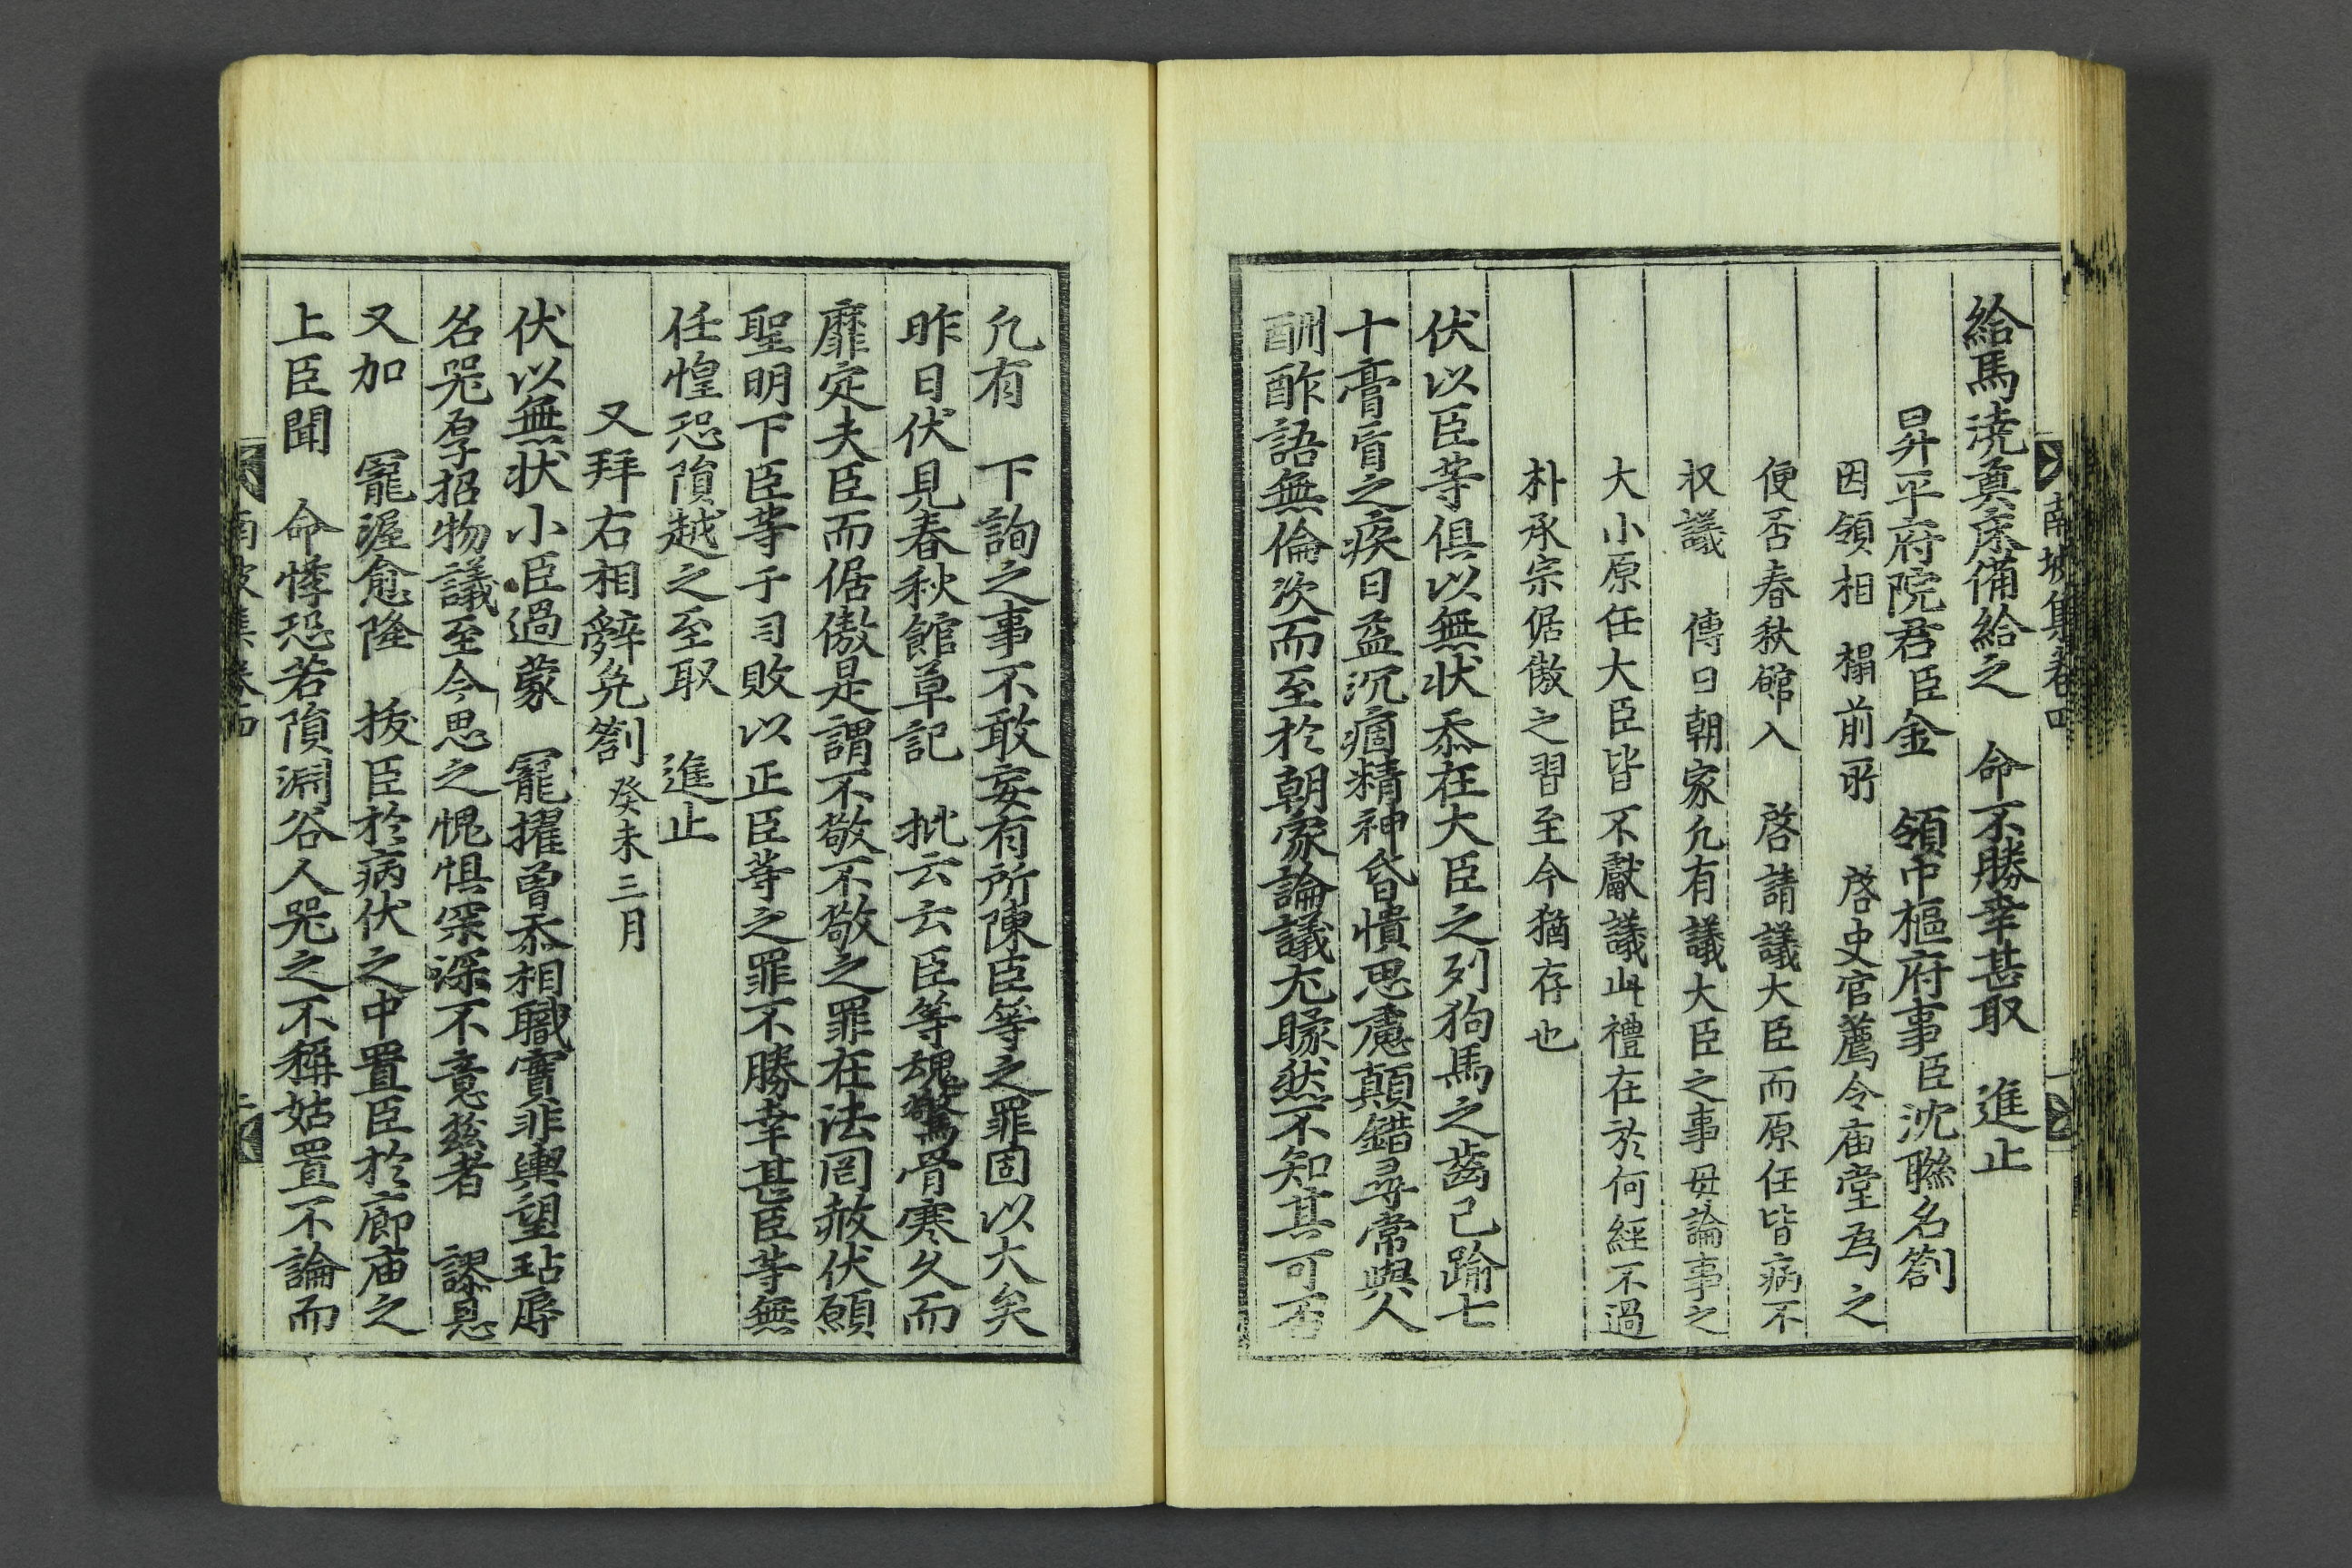 南坡集卷四
給馬澆奠床備給之 命不勝幸甚取 進止
昇平府院君臣金 領中樞府事臣沈聯名劄
因領相 榻前所 啓史官薦令庙堂爲之
便否春秋館入 啓請議大臣而原任皆病不
収議 傳曰朝家凢有議大臣之事毋論事之
大小原任大臣皆不獻議此禮在於何經不過
朴承宗倨傲之習至今猶存也
伏以臣等俱以無状忝在大臣之列狗馬之齒已踰七
十膏肓之疾日益沉痼精神昏憒思慮顛錯尋常與人
酬酢語無倫次而至於朝家論議尤矇然不知其可否
凢有 下詢之事不敢妄有所陳臣等之罪固以大矣
昨日伏見春秋館草記 批云云臣等魂驚骨寒久而
靡定夫臣而倨傲是謂不敬不敬之罪在法罔赦伏願
聖明下臣等于司敗以正臣等之罪不勝幸甚臣等無
任惶恐隕越之至取 進止
又拜右相辭免劄 癸未三月
伏以無状小臣過蒙 寵擢曾忝相職實非輿望玷辱
名器孽招物議至今思之愧惧罙深不意玆者 謬恩
又加 寵渥愈隆 拔臣於病伏之中置臣於廊庙之
上臣聞 命悸恐若隕淵谷人器之不稱姑置不論而
南坡集卷四